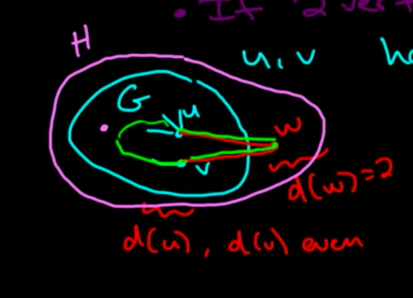 • If 2 vert
H
u, v
G
u
w
v
d(w)=2
d(u), d(v) even